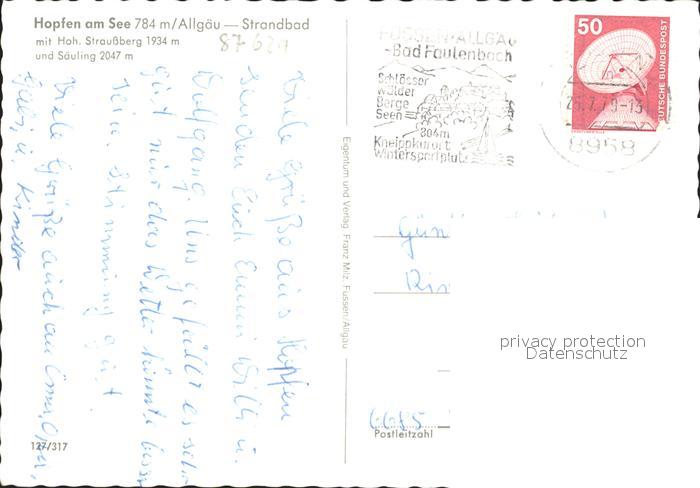 Hopfen am See 784 m/Allgäu — Strandbad
mit Hoh. Straußberg 1934 m
und Säuling 2047 m
87629
Viele Grüße aus Hopfen
senden Euch Emmi Willi u.
Wolfgang. Uns gefällt es sehr
gut nur das Wetter könnte besser
sein. Stimmung gut
Viele Grüße auch an
u. Kinder
127/317
Eigentum und Verlag Franz Milz, Füssen/Allgäu
FÜSSEN·ALLGÄU
-Bad Faulenbach
Schlösser
Wälder
Berge
Seen
804m
Kneippkurort
Wintersportplatz
50
DEUTSCHE BUNDESPOST
8958
Gün
6685
Postleitzahl
privacy protection
Datenschutz